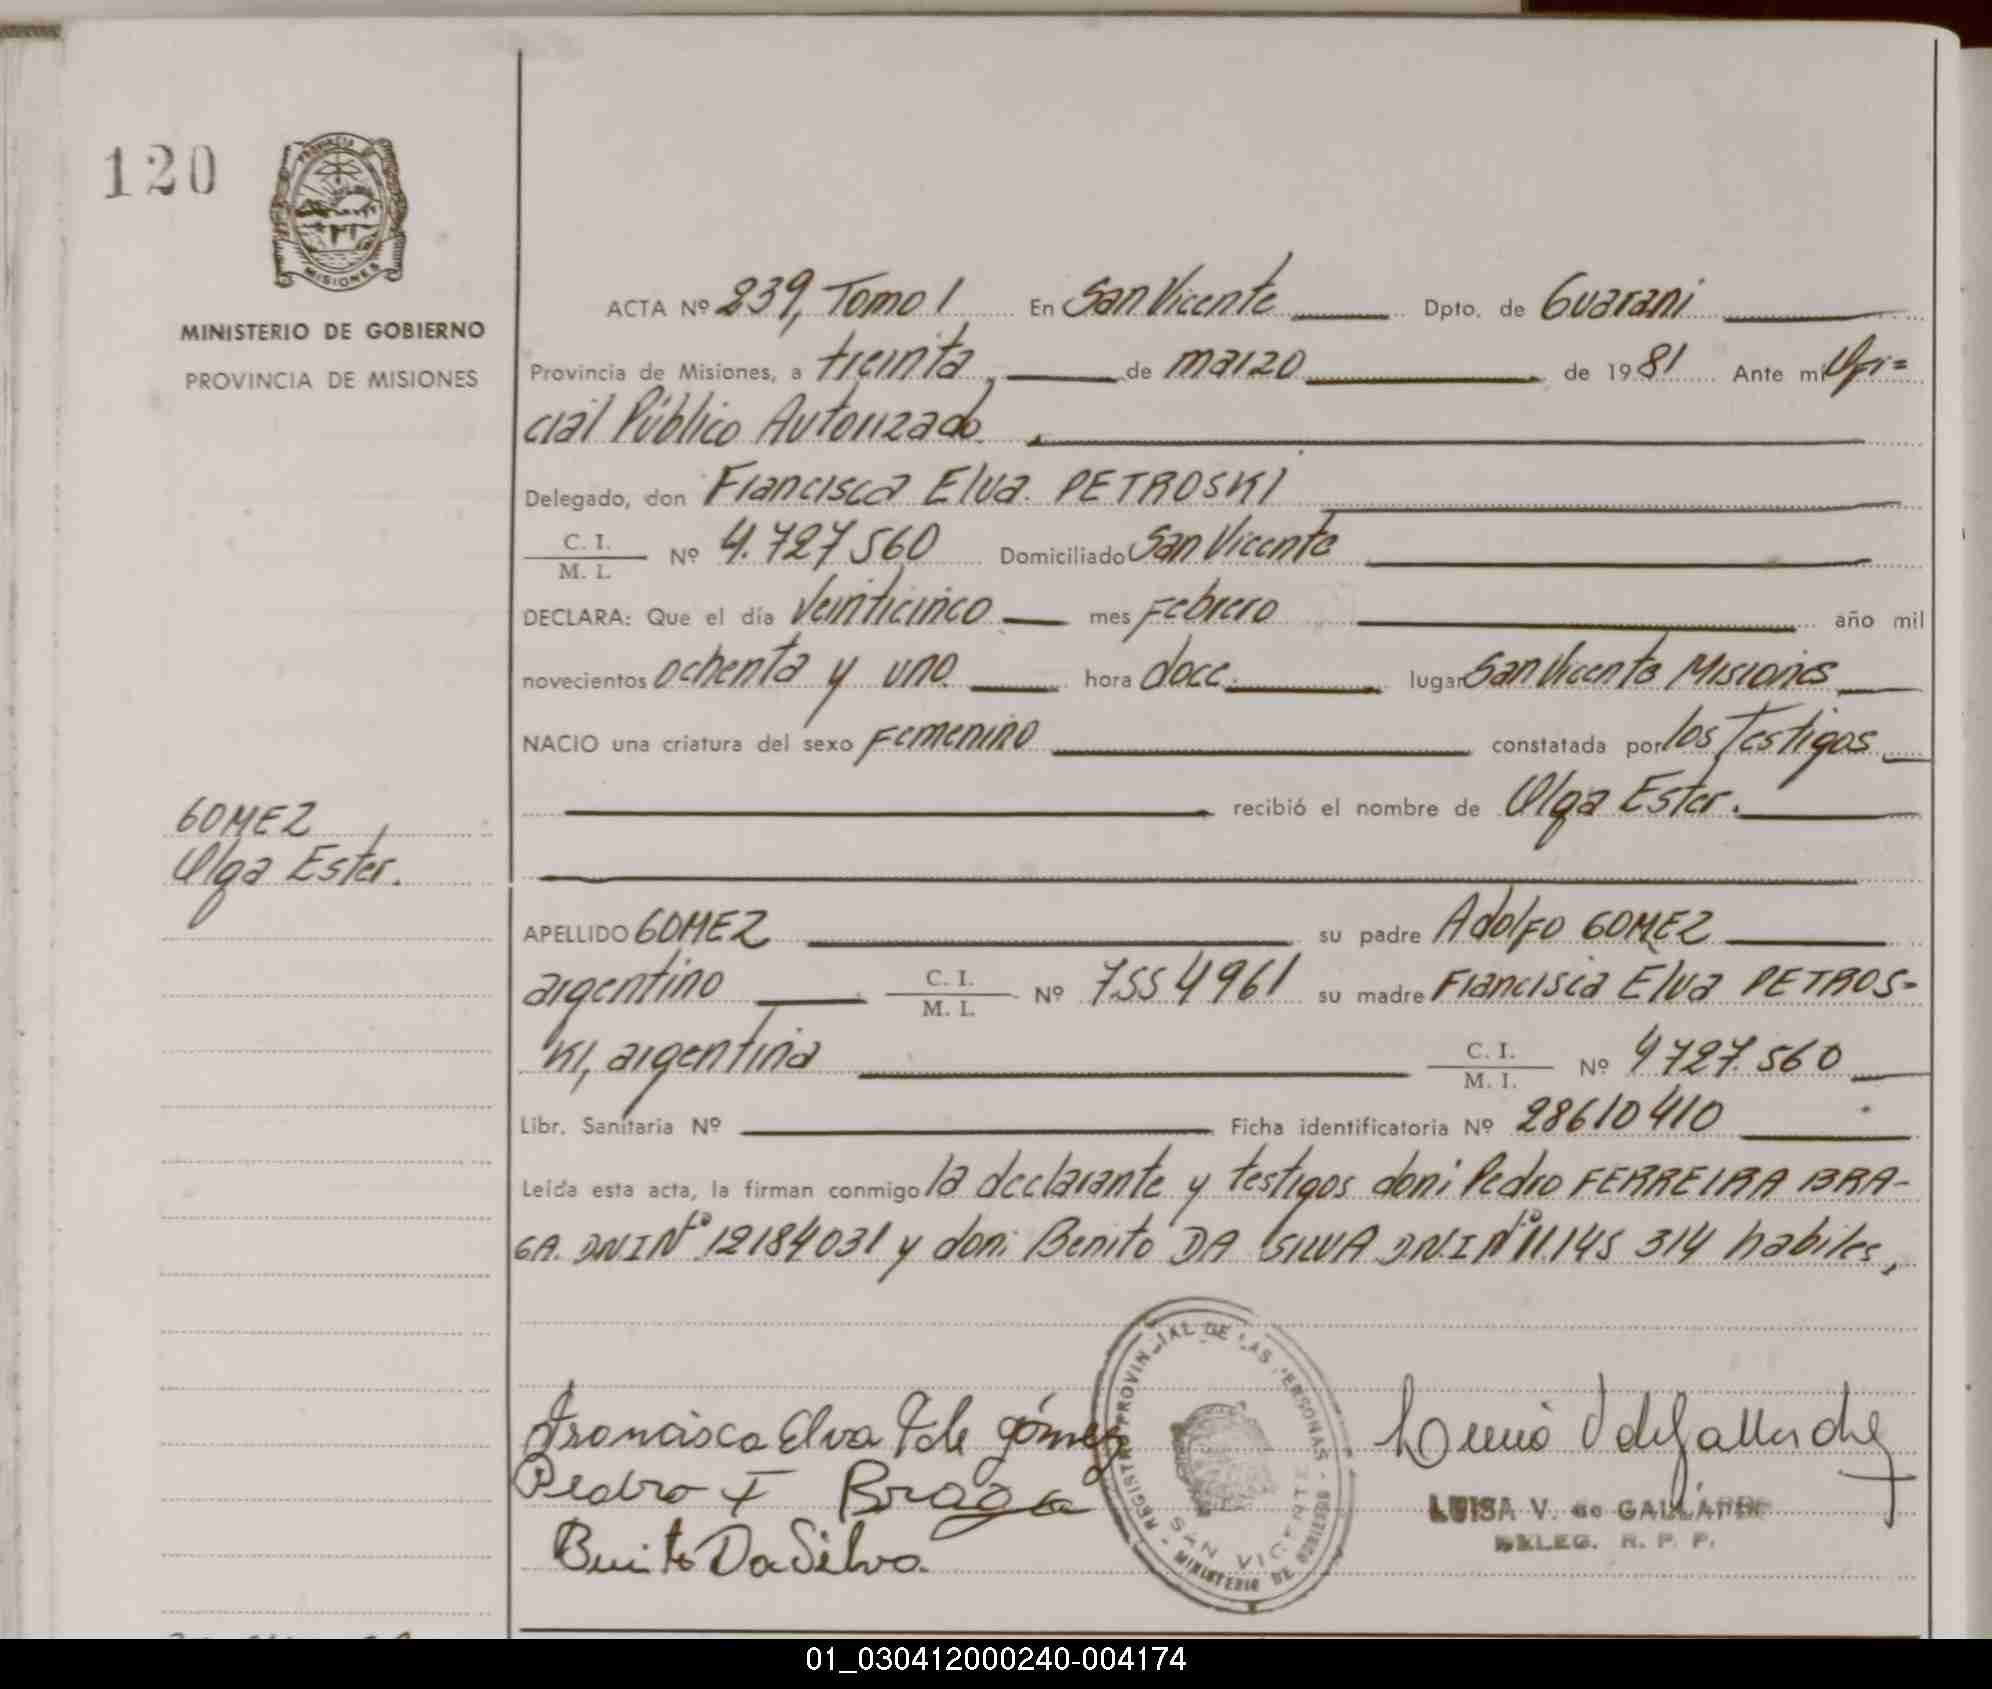 120
PROVINCIA DE
MISIONES
MINISTERIO DE GOBIERNO
PROVINCIA DE MISIONES
GOMEZ
Olga Ester.
ACTA Nº 239, Tomo I En San Vicente Dpto. de Guarani
Provincia de Misiones, a treinta, de marzo de 1981 Ante mi Ofi=
cial Público Autorizado.
Delegado, don Francisca Elva. PETROSKI
C. I.
M. I. Nº 4.727 560 Domiciliado San Vicente
DECLARA: Que el día veinticinco mes Febrero año mil
novecientos ochenta y uno. hora doce. lugar San Vicente Misiones
NACIO una criatura del sexo Femenino constatada por los Testigos
recibió el nombre de Olga Ester.
APELLIDO GOMEZ su padre Adolfo GOMEZ
argentino C. I.
M. I. Nº 7.554961 su madre Francisca Elva PETROS-
KI, argentina C. I.
M. I. Nº 4727.560
Libr. Sanitaria Nº Ficha identificatoria Nº 28610410
Leída esta acta, la firman conmigo la declarante y testigos don: Pedro FERREIRA BRA-
GA. DNI Nº 12184031 y don: Benito DA SILVA D.N.I Nº 11.145 314 habiles,
Francisca Elva P de Gómez
Pedro F Braga
Benito Da Silva.
REGISTRO PROVINCIAL DE LAS PERSONAS - MINISTERIO DE GOBIERNO -
SAN VICENTE
LUISA V. de GALLARDO
DELEG. R. P. P.
01_030412000240-004174